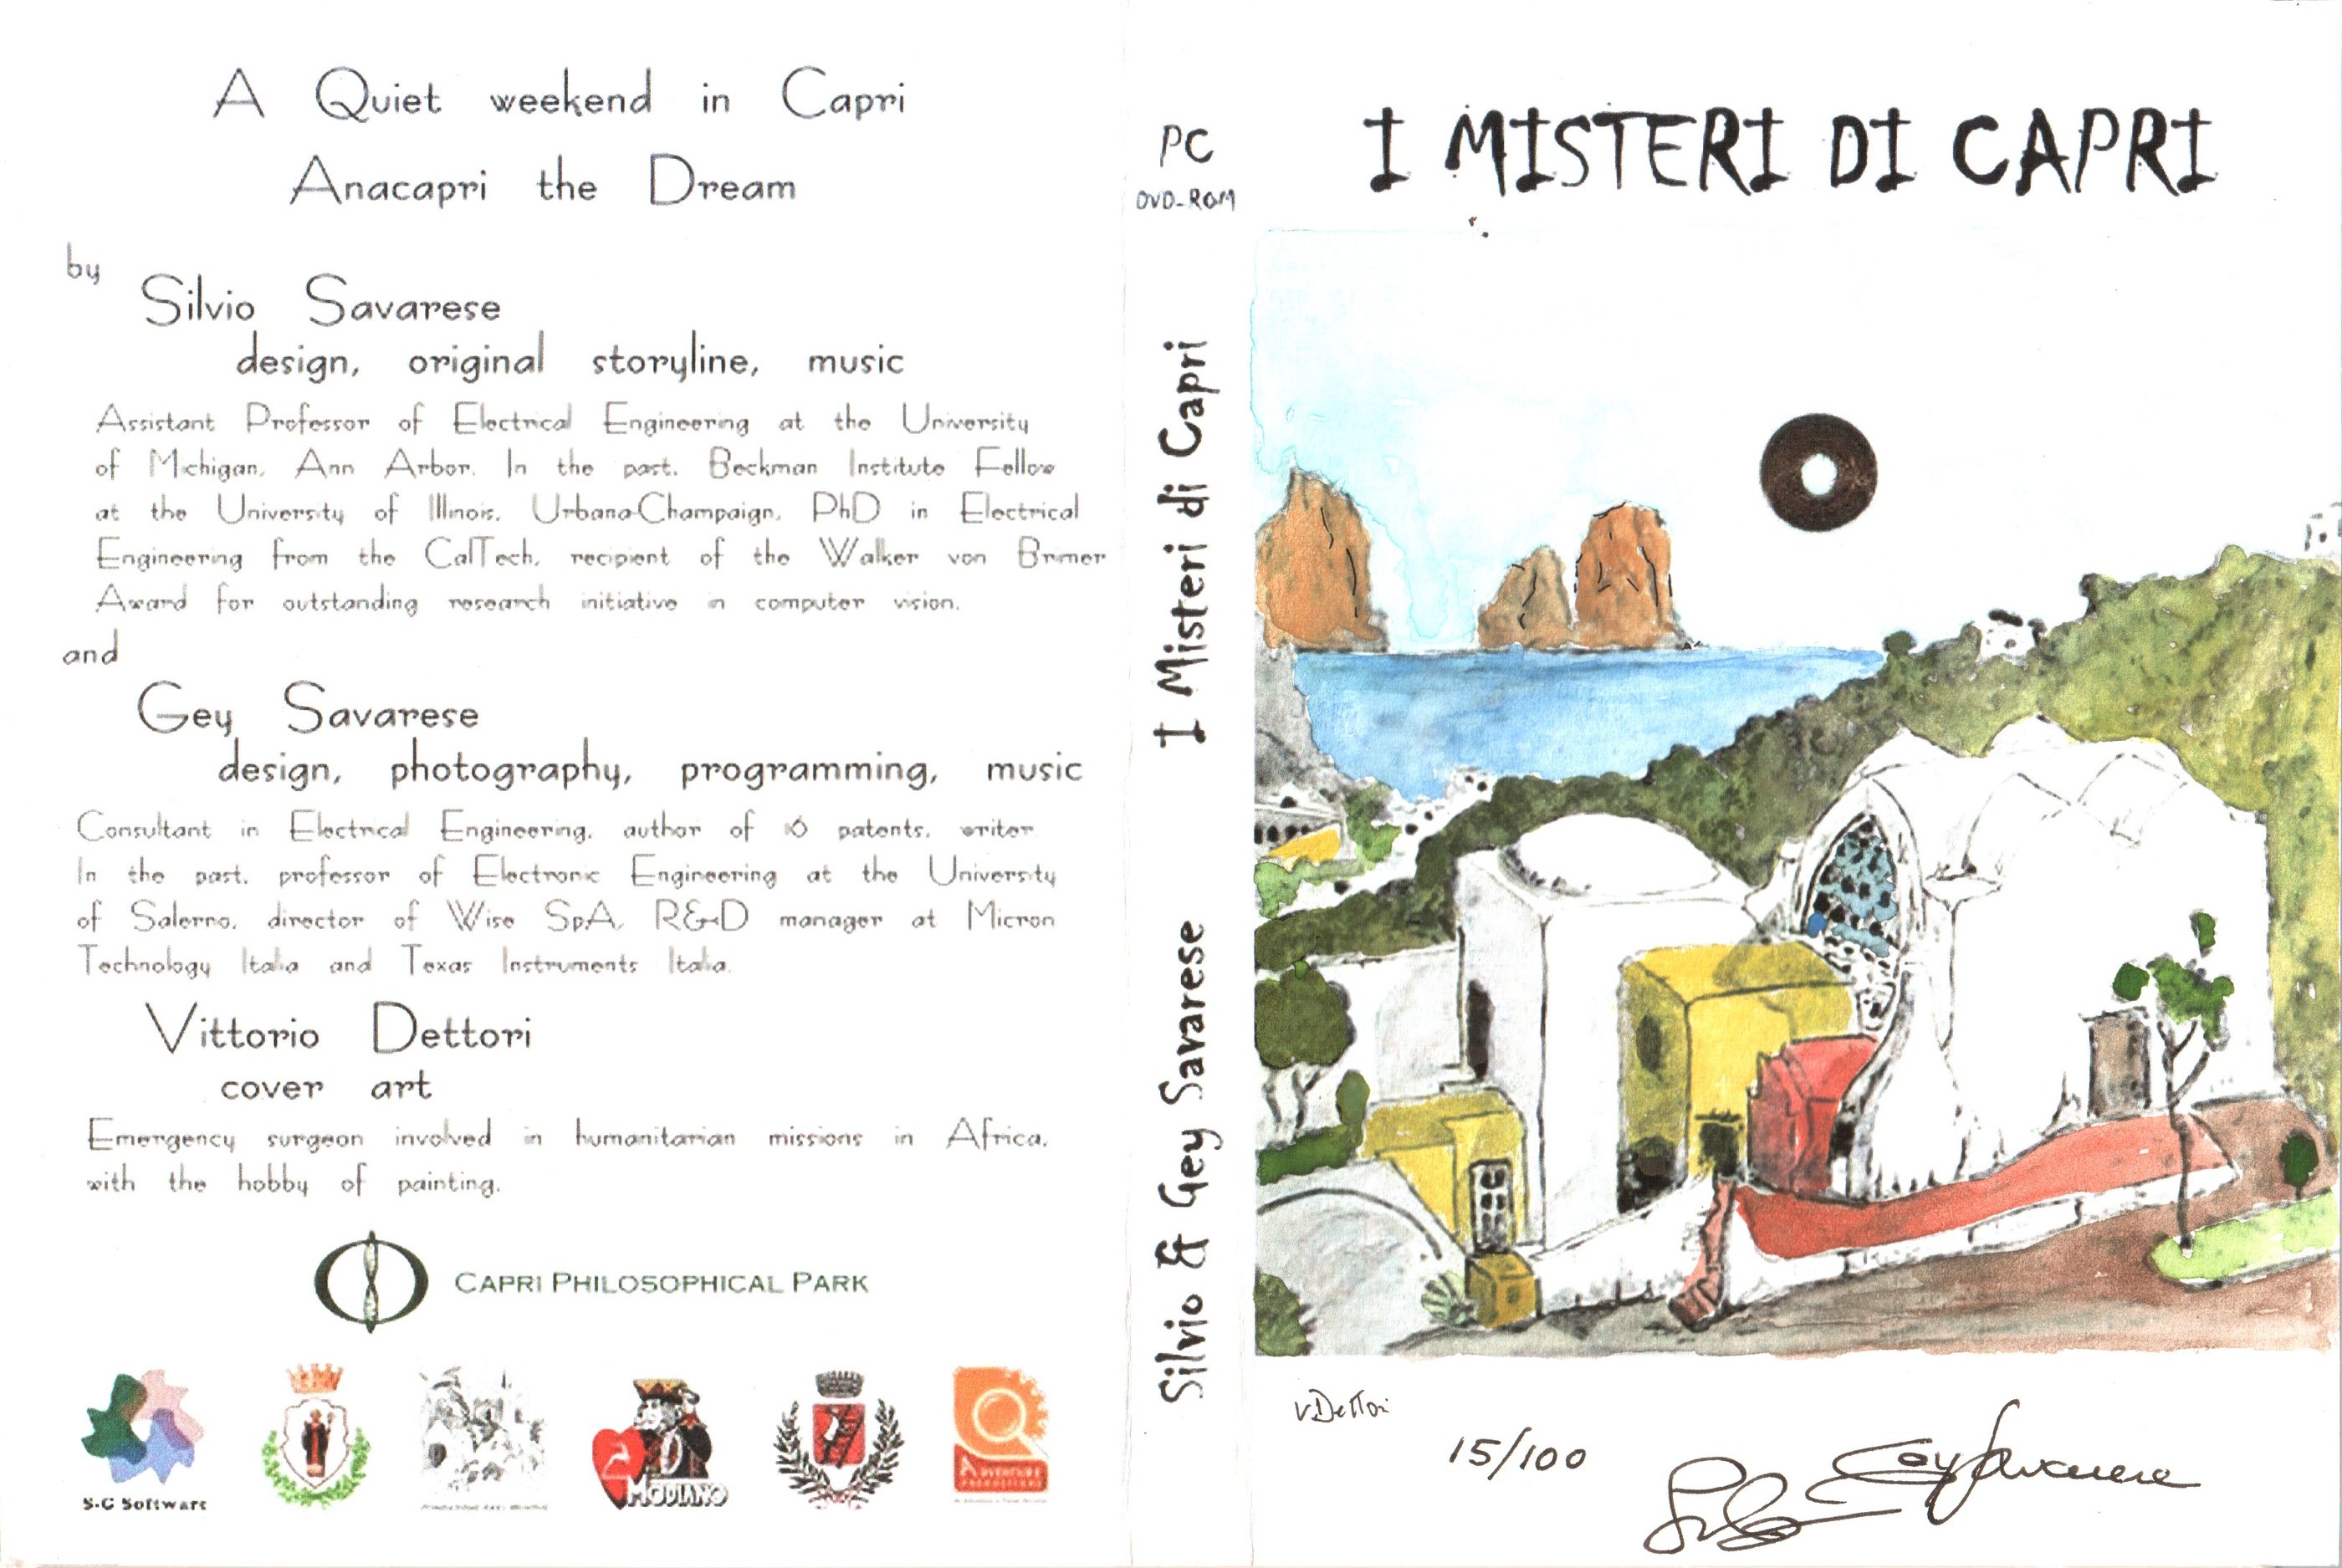 A Quiet weekend in Capri
Anacapri the Dream
by
Silvio Savarese
design, original storyline, music
Assistant Professor of Electrical Engineering at the University
of Michigan, Ann Arbor. In the past, Beckman Institute Fellow
at the University of Illinois, Urbana-Champaign, PhD in Electrical
Engineering from the CalTech, recipient of the Walker von Brimer
Award for outstanding research initiative in computer vision.
and
Gey Savarese
design, photography, programming, music
Consultant in Electrical Engineering, author of 16 patents, writer.
In the past, professor of Electronic Engineering at the University
of Salerno, director of Wise SpA, R&D manager at Micron
Technology Italia and Texas Instruments Italia.
Vittorio Dettori
cover art
Emergency surgeon involved in humanitarian missions in Africa,
with the hobby of painting.
CAPRI PHILOSOPHICAL PARK
S-G Software
MODIANO
ADVENTURE
PRODUCTIONS
PC
DVD-ROM
I Misteri di Capri
Silvio & Gey Savarese
I MISTERI DI CAPRI
V.Dettori
15/100
Silvio
Gey Savarese